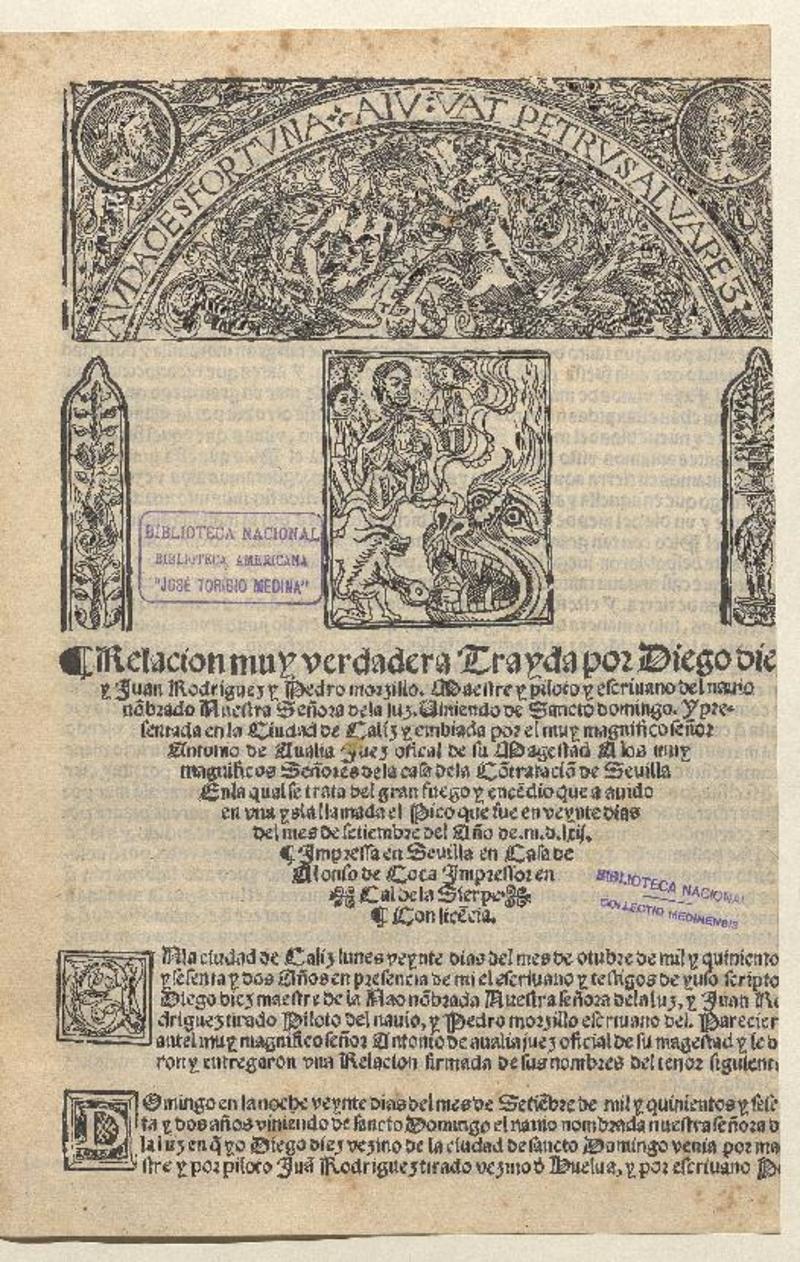 AVDACES FORTVNA AIVVAT PETRVS ALVAREZ
BIBLIOTECA NACIONAL
BIBLIOTECA AMERICANA
"JOSÉ TORIBIO MEDINA"
¶ Relacion muy verdadera Trayda por Diego die
y Juan Rodriguez y Pedro morzillo. Maestre y piloto y escriuano del nauio
nõbrado Nuestra Señora dela luz. Viniendo de Sancto domingo. Y pre-
sentada en la Ciudad de Caliz y embiada por el muy magnifico señor
Antonio de Aualia Juez ofical de su Magestad A los muy
magnificos Señores dela casa dela Cõtrataciõ de Seuilla
Enla qual se trata del gran fuego y encẽdio que a auido
en vna ysla llamada el Pico que fue en veynte dias
del mes de setiembre del Año de.m.d.lxij.
¶ Impressa en Seuilla en Casa de
Alonso de Coca Impressor en
Cal dela Sierpe
¶ Con licẽcia.
BIBLIOTECA NACIONAL
COLLECTIO MEDINENSIS
EN la ciudad de Caliz lunes veynte dias del mes de otubre de mil y quiniento
y sesenta y dos Años en presencia de mi el escriuano y testigos de yuso scripto
Diego diez maestre de la Nao nõbrada Nuestra señora dela luz, y Juan Ro
driguez tirado Piloto del nauio, y Pedro morzillo escriuano del. Parecier
ante l muy magnifico señor Antonio de aualia juez oficial de su magestad y le d
ron y entregaron vna Relacion firmada de sus nombres del tenor siguient
DOmingo en la noche veynte dias del mes de Setiẽbre de mil y quinientos y sese
ta y dos años viniendo de sancto Domingo el nauio nombrada nuestra señora d
la luz en q̃ yo Diego diez vezino de la ciudad de sancto Domingo venia por ma
stre y por piloto Juã Rodriguez tirado vezino d Huelua, y por escriuano Pe